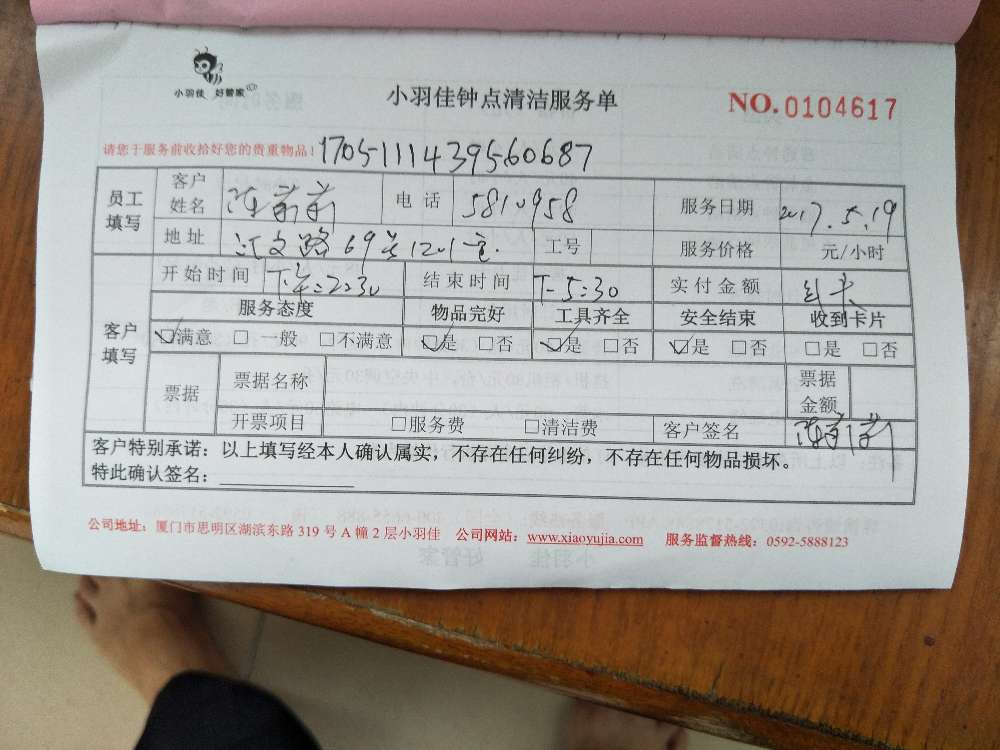 小羽佳 好管家
小羽佳钟点清洁服务单
NO.0104617
请您于服务前收拾好您的贵重物品！ 1705111439560687
员工填写 客户姓名 陈前前 电话 5810958 服务日期 2017.5.19
地址 文路69号1201室. 工号 服务价格 元/小时
客户填写 开始时间 下午2:30 结束时间 下5:30 实付金额
服务态度 物品完好 工具齐全 安全结束 收到卡片
☑满意 □一般 □不满意 ☑是 □否 ☑是 □否 ☑是 □否 □是 □否
票据 票据名称 票据金额
开票项目 □服务费 □清洁费 客户签名 陈前前
客户特别承诺：以上填写经本人确认属实，不存在任何纠纷，不存在任何物品损坏。
特此确认签名：
公司地址：厦门市思明区湖滨东路 319 号 A 幢 2 层小羽佳 公司网站：www.xiaoyujia.com 服务监督热线：0592-5888123